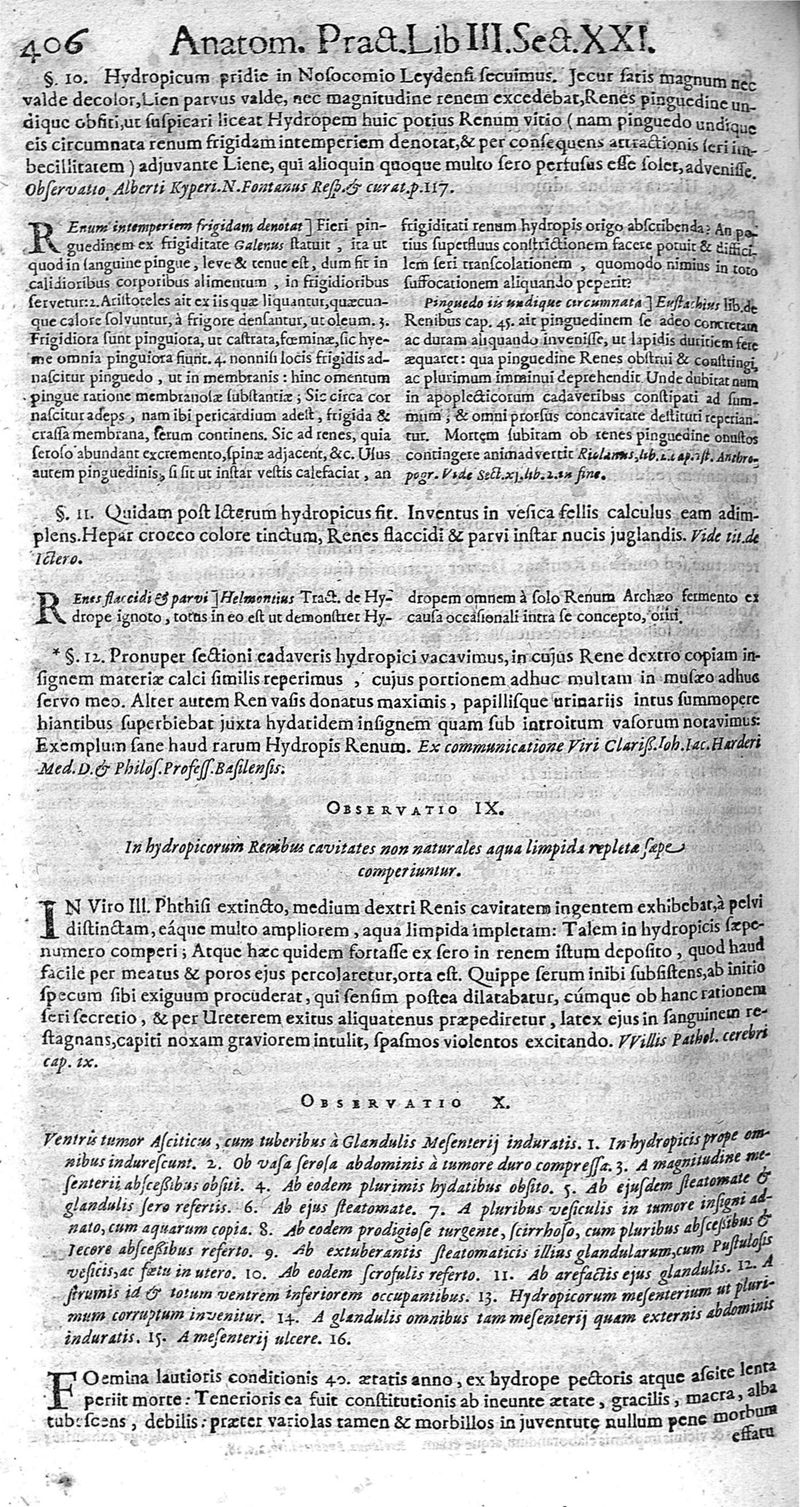 406 Anatom. Pract.Lib III.Sect.XXI.
§. 10. Hydropicum pridie in Nosocomio Leydensi secuimus. Jecur satis magnum nec
valde decolor,Lien parvus valde, nec magnitudine renem excedebat,Renes pinguedine un-
dique obsiti,ut suspicari liceat Hydropem huic potius Renum vitio (nam pinguedo undique
eis circumnata renum frigidam intemperiem denotat,& per consequens attractionis seri im-
becillitatem) adjuvante Liene, qui alioquin quoque multo sero perfusus esse solet,advenisse.
Observatio Alberti Kyperi.N.Fontanus Resp.& curat.p.117.
REnum intemperiem frigidam denotat] Fieri pin-
guedinem ex frigiditate Galenus statuit, ita ut
quod in sanguine pingue, leve & tenue est, dum fit in
calidioribus corporibus alimentum, in frigidioribus
servetur:2.Aristoteles ait ex iis quæ liquantur,quæcun-
que calore solvuntur, à frigore densantur, ut oleum. 3.
Frigidiora sunt pinguiora, ut castrata, fœminæ, sic hye-
me omnia pinguiora fiunt. 4. nonnisi locis frigidis ad-
nascitur pinguedo, ut in membranis: hinc omentum
pingue ratione membranosæ substantiæ; Sic circa cor
nascitur adeps, nam ibi pericardium adest, frigida &
crassa membrana, serum continens. Sic ad renes, quia
seroso abundant excremento,spinæ adjacent, &c. Usus
autem pinguedinis, si sit ut instar vestis calefaciat, an
frigiditati renum hydropis origo abscribenda? An po-
tius superfluus constrictionem facere potuit & diffici-
lem seri transcolationem, quomodo nimius in toto
suffocationem aliquando peperit?
Pinguedo iis undique circumnata] Eustachius lib.de
Renibus cap. 45. ait pinguedinem se adeo concretam
ac duram aliquando invenisse, ut lapidis duritiem fere
æquaret: qua pinguedine Renes obstrui & constringi,
ac plurimum imminui deprehendit. Unde dubitat num
in apoplecticorum cadaveribus constipati ad sum-
mum, & omni prorsus concavitate destituti reperian-
tur. Mortem subitam ob renes pinguedine onustos
contingere animadvertit Riolanus,lib. Anthro-
pogr. Vide Sect.xj.lib.2.in fine.
§. 11. Quidam post Icterum hydropicus fit. Inventus in vesica fellis calculus eam adim-
plens.Hepar croceo colore tinctum, Renes flaccidi & parvi instar nucis juglandis. Vide tit.de
Ictero.
REnes flaccidi & parvi] Helmontius Tract. de Hy-
drope ignoto, totus in eo est ut demonstret Hy-
dropem omnem à solo Renum Archæo fermento ex
causa occasionali intra se concepto, oriri.
* §. 12. Pronuper sectioni cadaveris hydropici vacavimus, in cujus Rene dextro copiam in-
signem materiæ calci similis reperimus, cujus portionem adhuc multam in musæo adhuc
servo meo. Alter autem Ren vasis donatus maximis, papillisque urinariis intus summopere
hiantibus superbiebat juxta hydatidem insignem quam sub introitum vasorum notavimus:
Exemplum sane haud rarum Hydropis Renum. Ex communicatione Viri Clariss.Joh.Iac.Harderi
Med.D.& Philos.Profess.Basilensis.
OBSERVATIO IX.
In hydropicorum Renibus cavitates non naturales aqua limpida repleta sæpe
comperiuntur.
IN Viro Ill. Phthisi extincto, medium dextri Renis cavitatem ingentem exhibebat,à pelvi
distinctam, eáque multo ampliorem, aqua limpida impletam: Talem in hydropicis sæpe-
numero comperi; Atque hæc quidem fortasse ex sero in renem istum deposito, quod haud
facile per meatus & poros ejus percolaretur,orta est. Quippe serum inibi subsistens,ab initio
specum sibi exiguum procuderat, qui sensim postea dilatabatur, cúmque ob hanc rationem
seri secretio, & per Ureterem exitus aliquatenus præpediretur, latex ejus in sanguinem re-
stagnans,capiti noxam graviorem intulit, spasmos violentos excitando. VVillis Pathol. cerebri
cap. ix.
OBSERVATIO X.
Ventris tumor Asciticus, cum tuberibus à Glandulis Mesenterij induratis. 1. In hydropicis prope om-
nibus indurescunt. 2. Ob vasa serosa abdominis à tumore duro compressa. 3. A magnitudine me-
senterii abscessibus obsiti. 4. Ab eodem plurimis hydatibus obsito. 5. Ab ejusdem steatomate &
glandulis sero refertis. 6. Ab ejus steatomate. 7. A pluribus vesiculis in tumore insigni ad-
nato, cum aquarum copia. 8. Ab eodem prodigiose turgente, scirrhoso, cum pluribus abscessibus &
Jecore abscessibus referto. 9. Ab extuberantis steatomaticis illius glandularum,cum Pustulosis
vesicis,ac fœtu in utero. 10. Ab eodem scrofulis referto. 11. Ab arefactis ejus glandulis. 12. A
strumis id & totum ventrem inferiorem occupantibus. 13. Hydropicorum mesenterium ut pluri-
mum corruptum invenitur. 14. A glandulis omnibus tam mesenterij quam externis abdominis
induratis. 15. A mesenterij ulcere. 16.
FOemina lautioris conditionis 40. ætatis anno, ex hydrope pectoris atque ascite lenta
periit morte: Tenerioris ea fuit constitutionis ab ineunte ætate, gracilis, macra, alba
tubescens, debilis: præter variolas tamen & morbillos in juventute nullum pene morbum
effatu